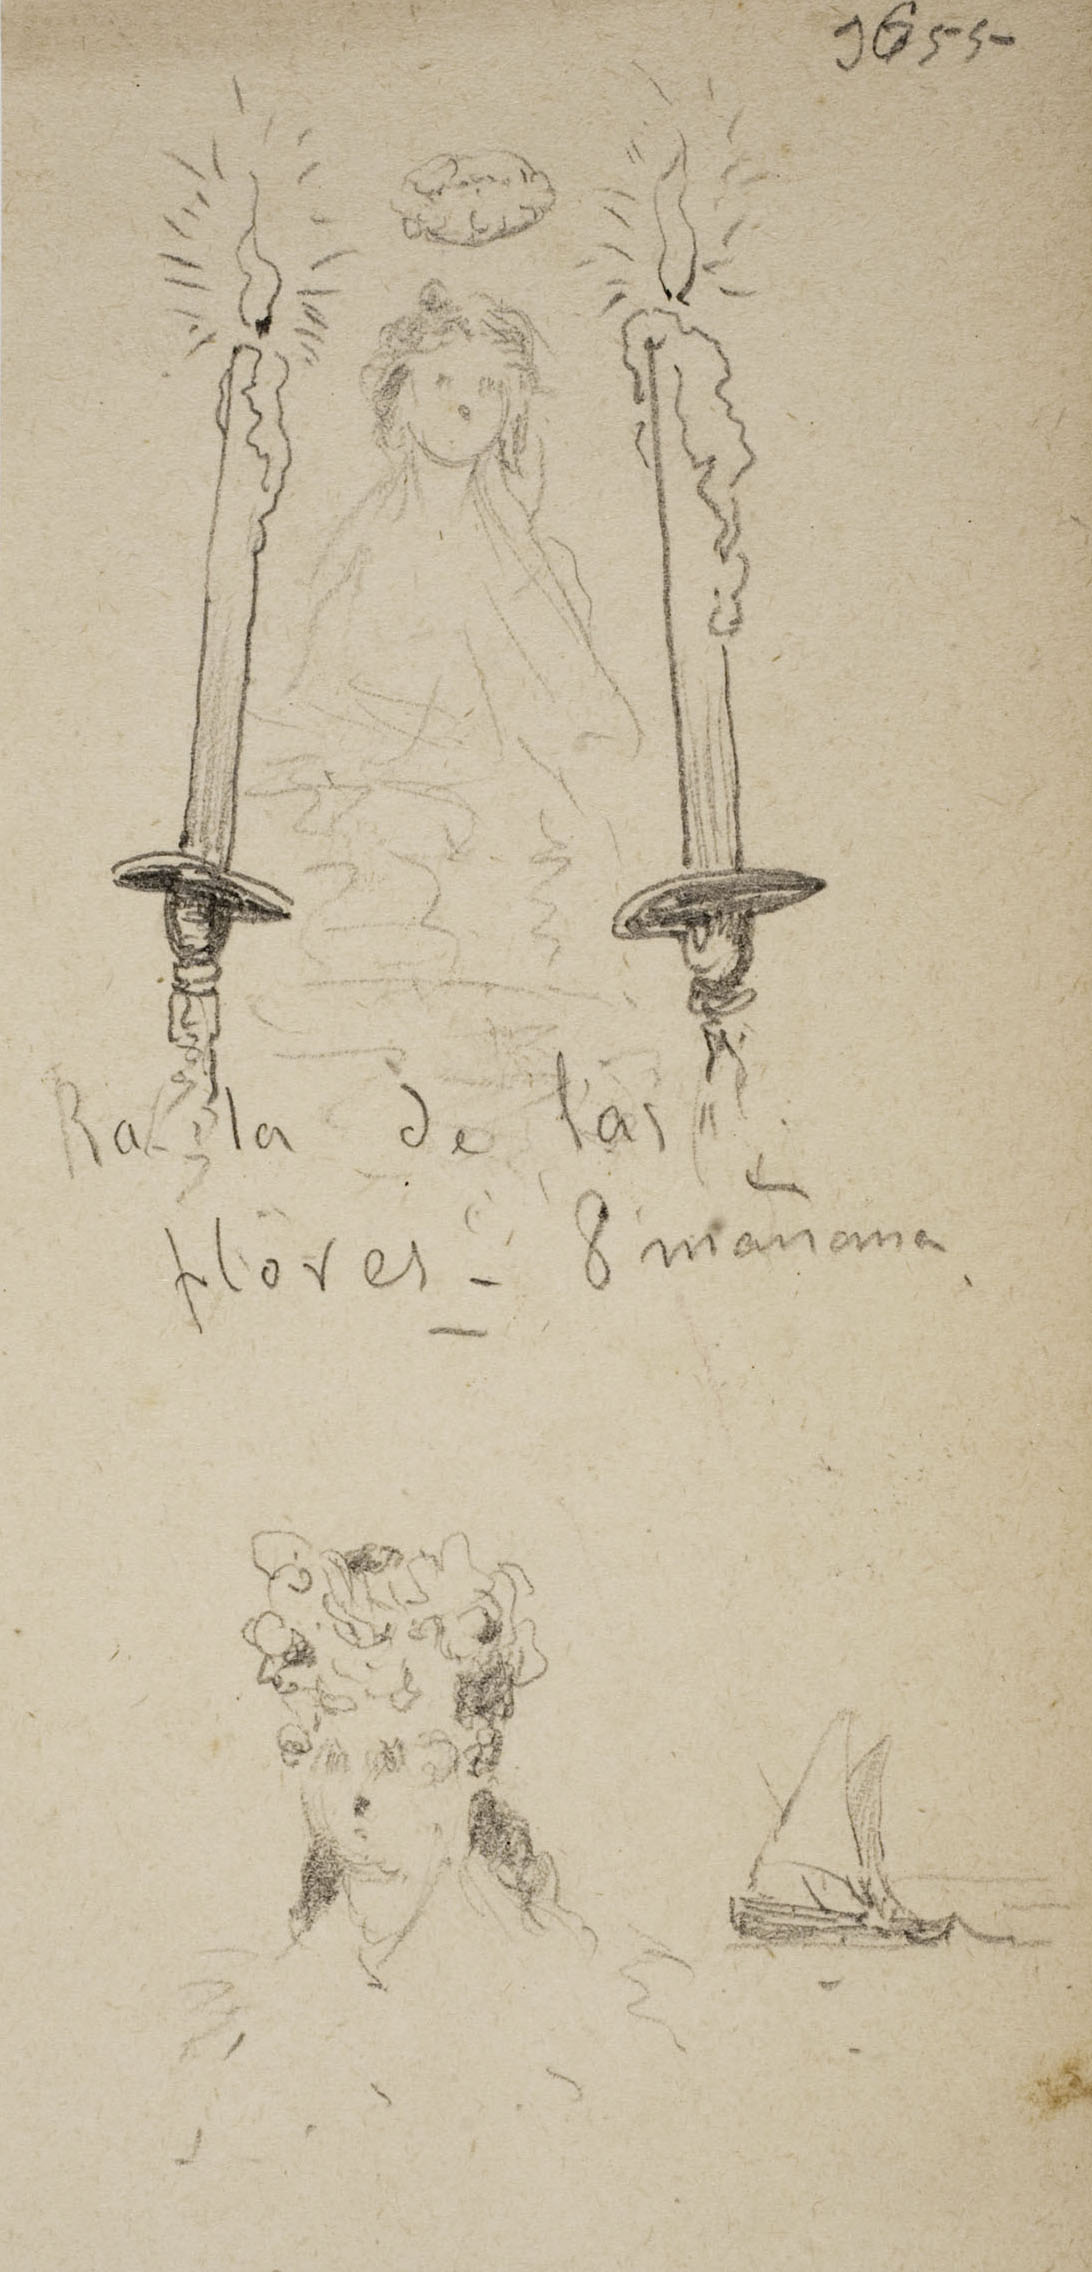 9655-
Rambla de las
flores - 8 mañana.